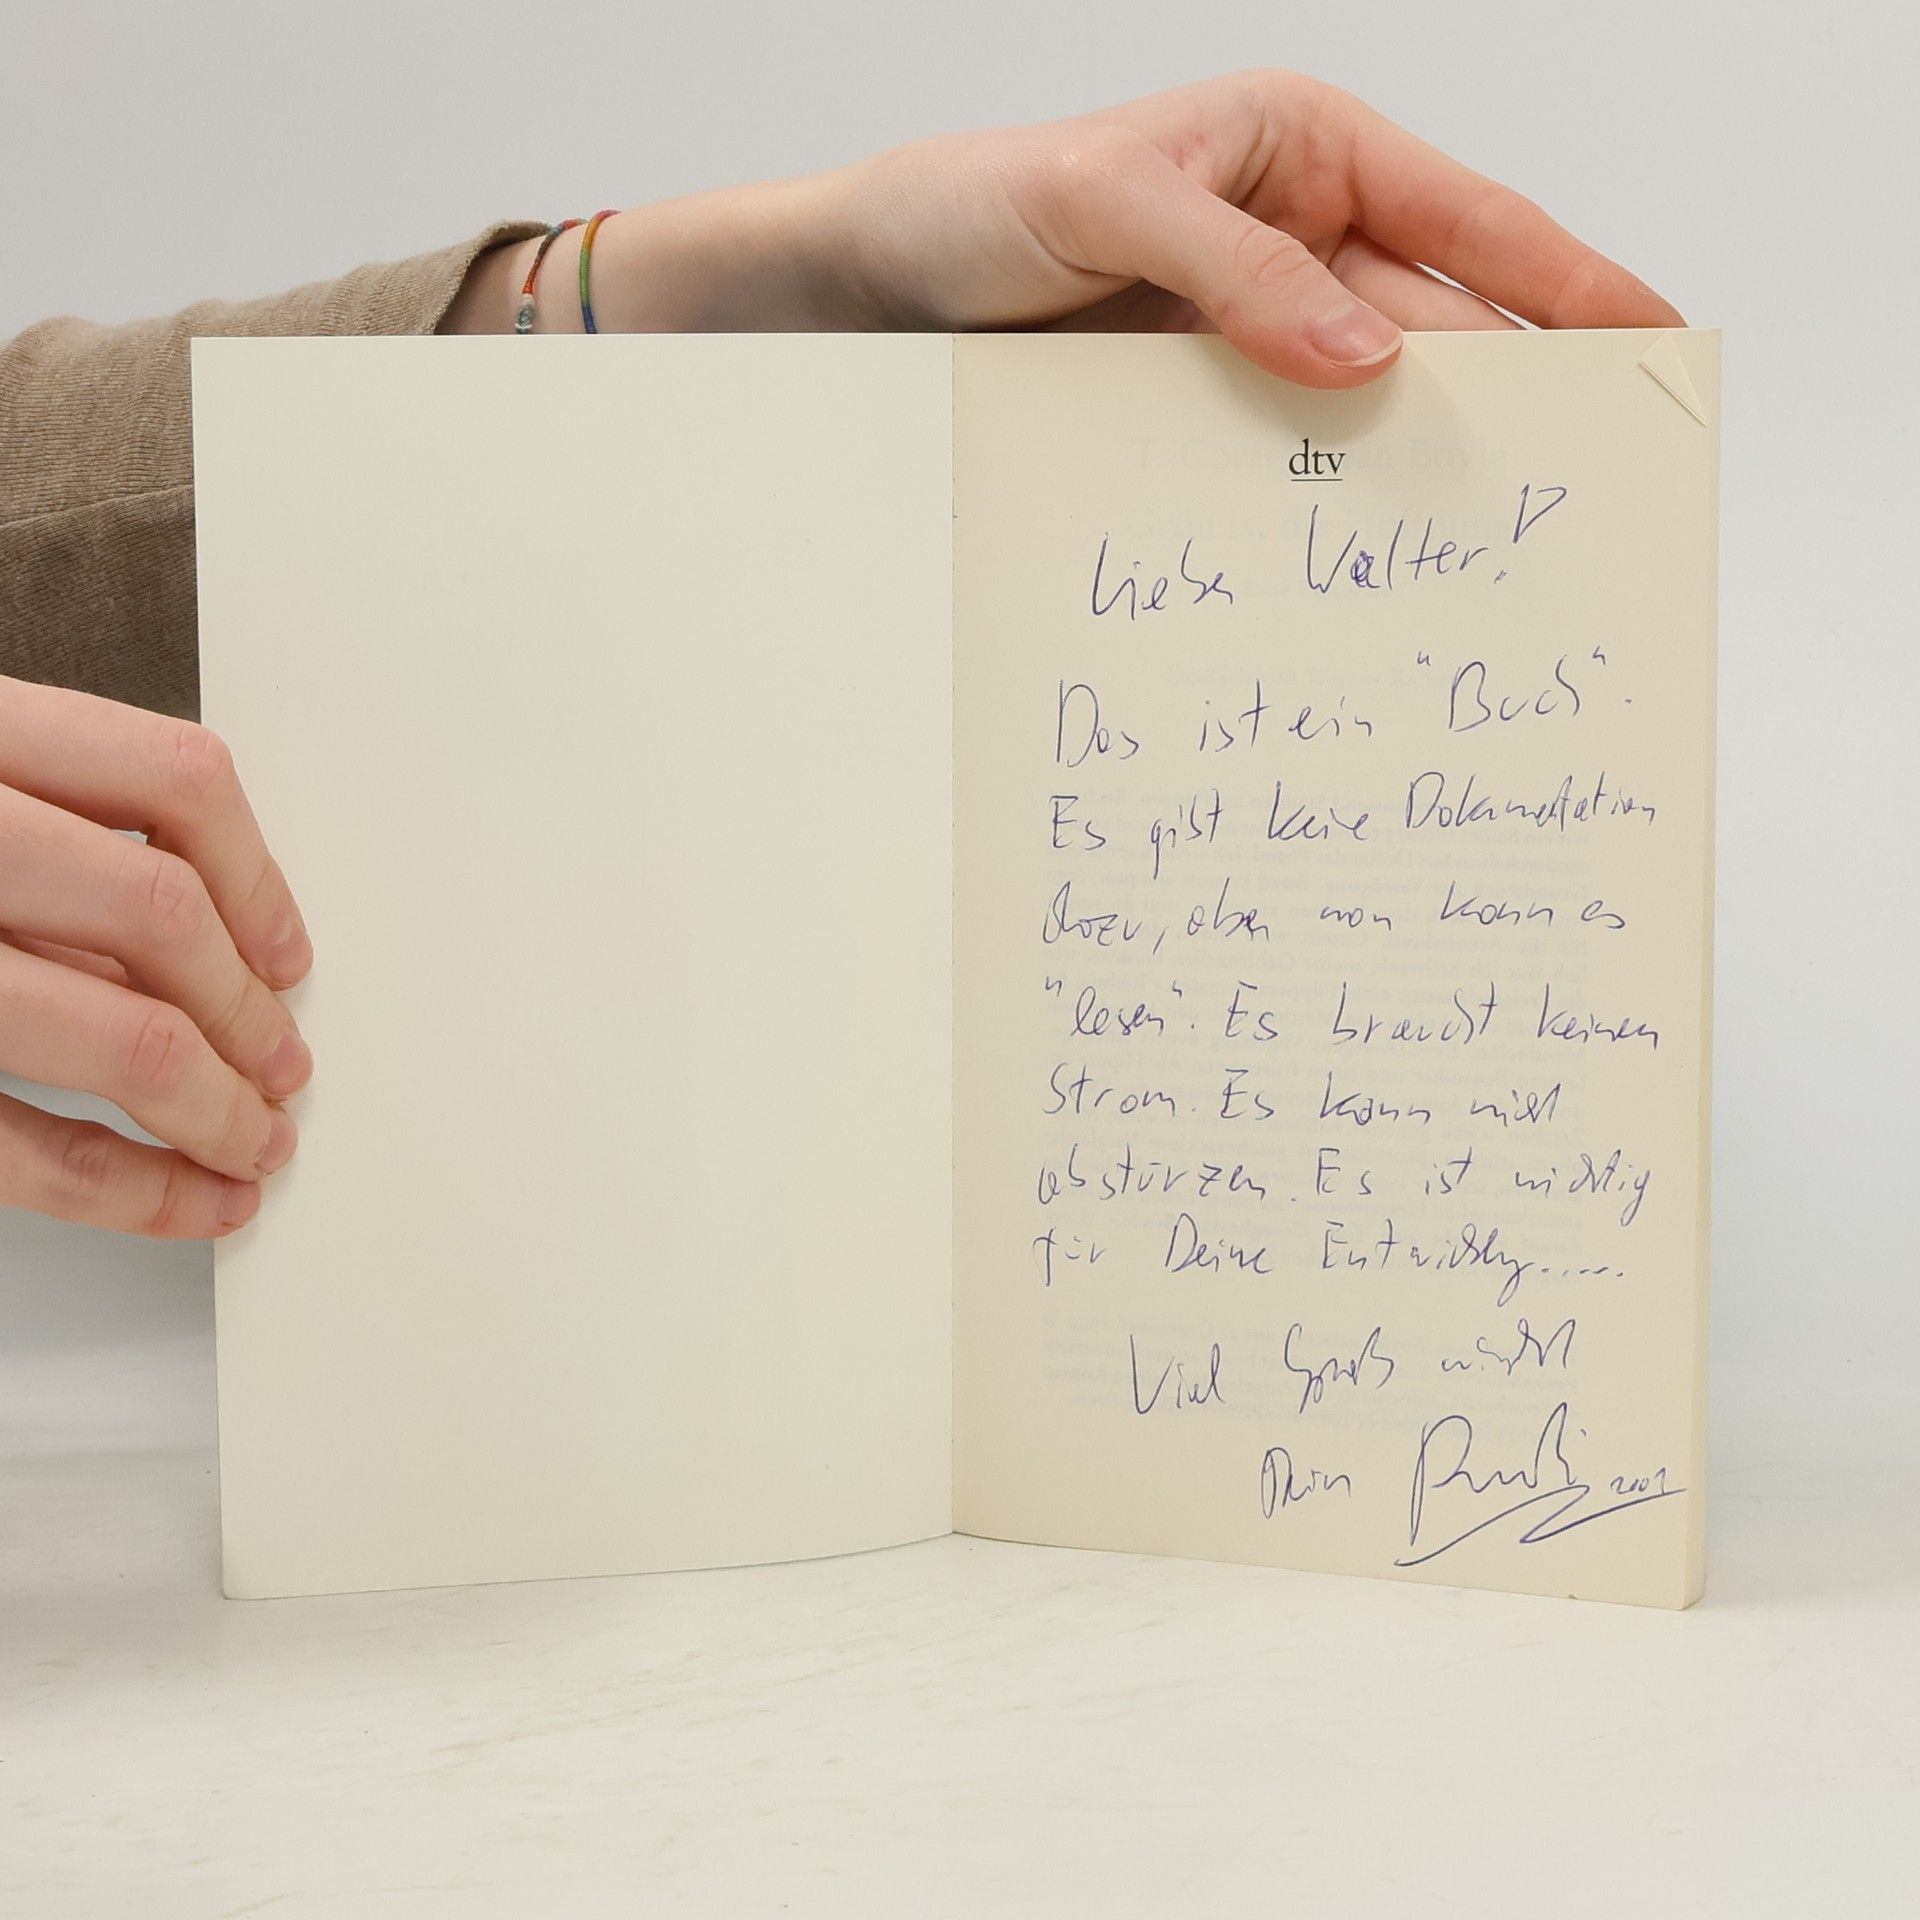 dtv
Lieber Walter!
Das ist ein "Buch".
Es gibt keine Dokumentation
dazu, aber man kann es
"lesen". Es braucht keinen
Strom. Es kann nicht
abstürzen. Es ist wichtig
für Deine Entwicklung.....
Viel Spaß wünscht
Dein Rudi 2001